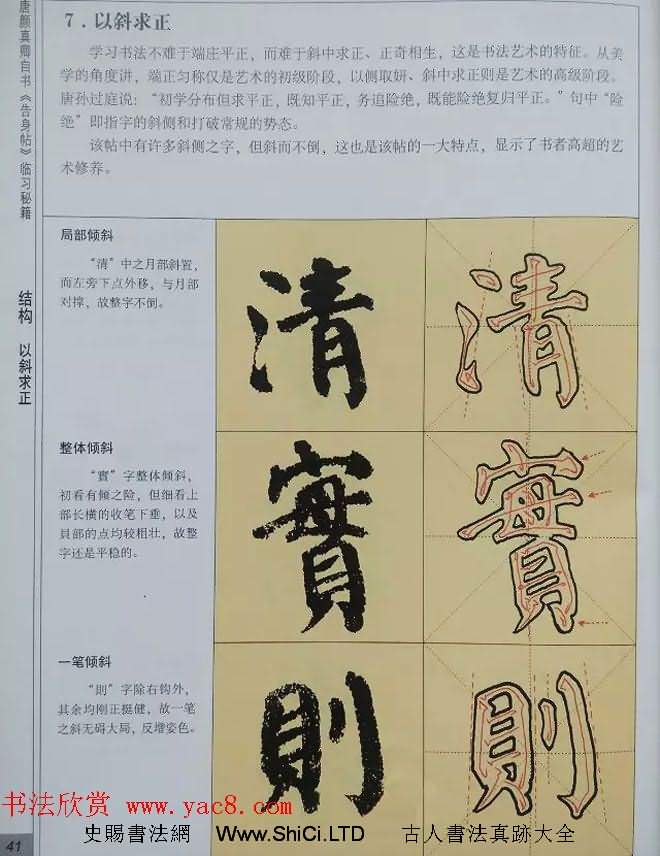 唐颜真卿自书《告身帖》临习秘籍
结构 以斜求正
7．以斜求正
学习书法不难于端庄平正，而难于斜中求正、正奇相生，这是书法艺术的特征。从美
学的角度讲，端正匀称仅是艺术的初级阶段，以侧取妍、斜中求正则是艺术的高级阶段。
唐孙过庭说：“初学分布但求平正，既知平正，务追险绝，既能险绝复归平正。”句中“险
绝”即指字的斜侧和打破常规的势态。
该帖中有许多斜侧之字，但斜而不倒，这也是该帖的一大特点，显示了书者高超的艺
术修养。
局部倾斜
“清”中之月部斜置，
而左旁下点外移，与月部
对撑，故整字不倒。
清 清
整体倾斜
“實”字整体倾斜，
初看有倾之险，但细看上
部长横的收笔下垂，以及
貝部的点均较粗壮，故整
字还是平稳的。
實 實
一笔倾斜
“則”字除右钩外，
其余均刚正挺健，故一笔
之斜无碍大局，反增姿色。
則 則
书法欣赏 www.yac8.com
史賜書法網 Www.ShiCi.LTD 古人書法真跡大全
41